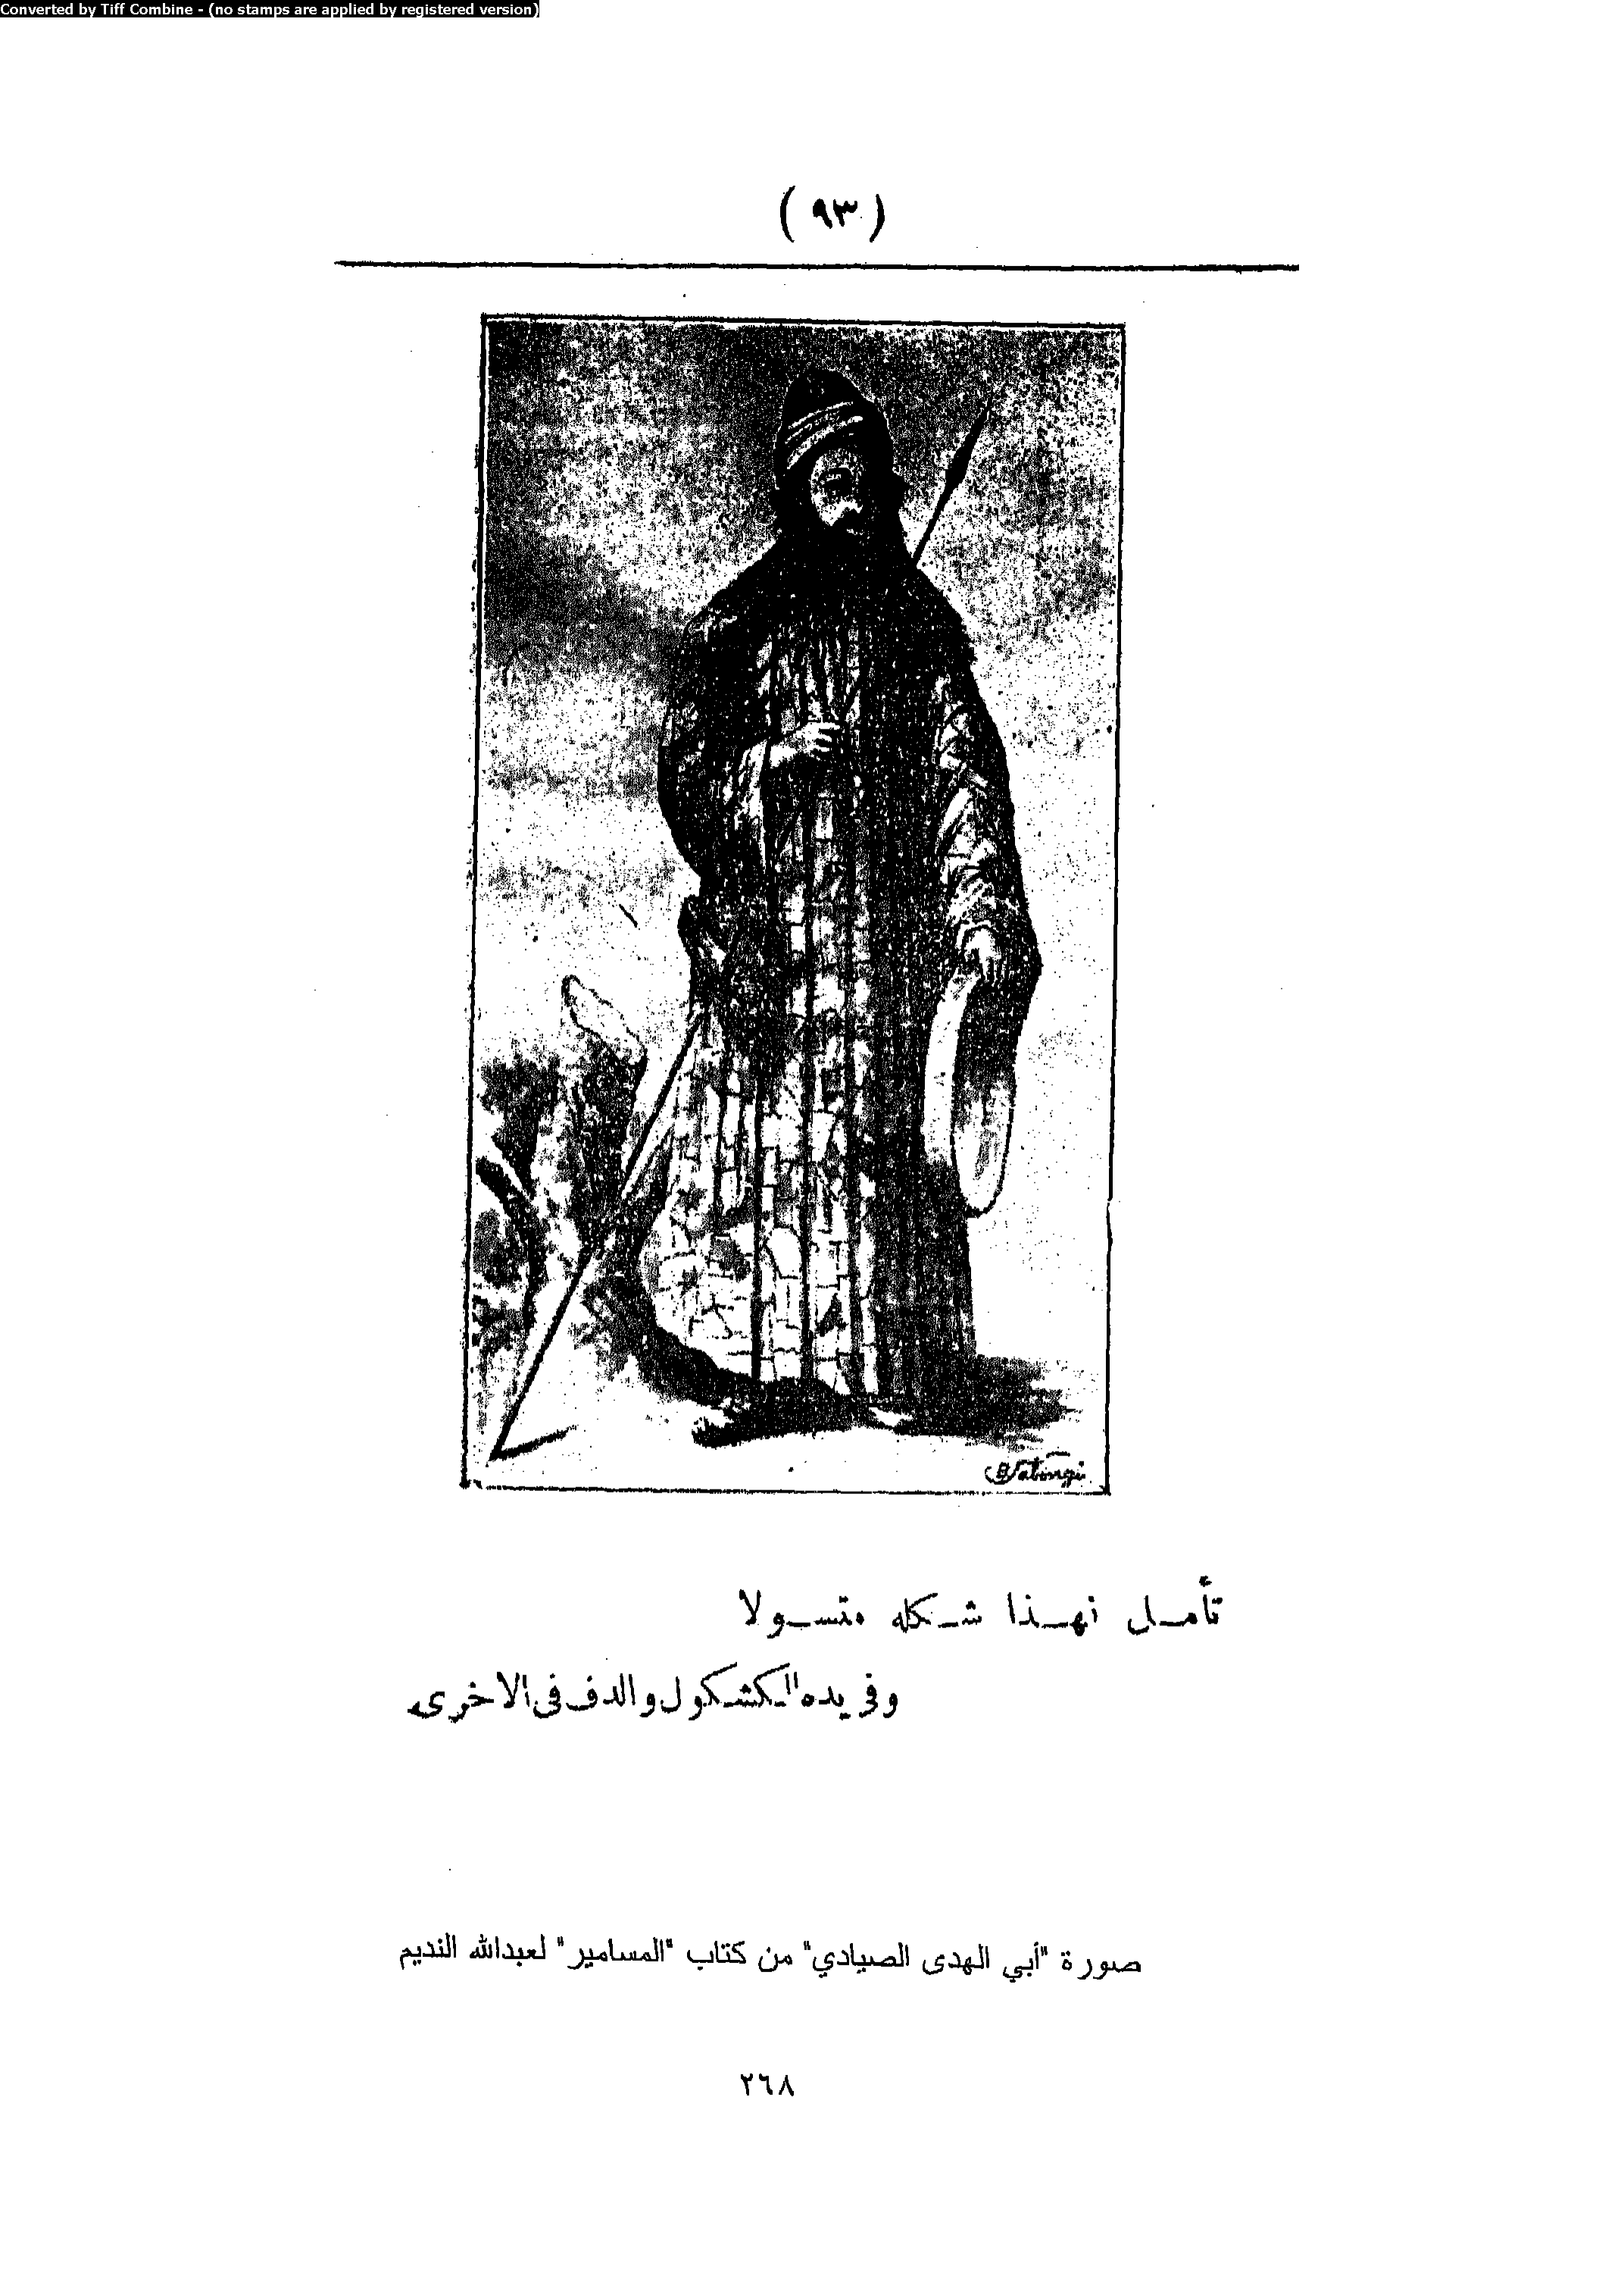 Converted by Tiff Combine - (no stamps are applied by registered version)
( ٩٣ )
تأمـل فهـذا شـكله متسـولا
وفي يده الكشكول والدف فى الاخرى
صورة "أبي الهدى الصيادي" من كتاب "المسامير" لعبدالله النديم
٢٦٨